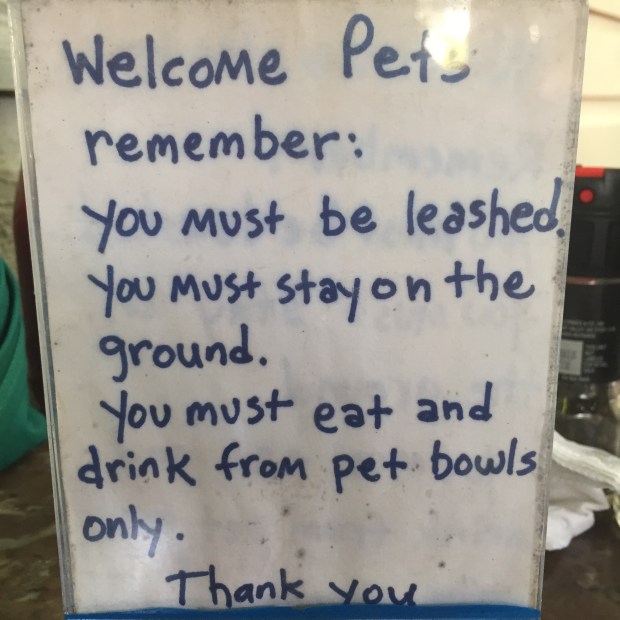 Welcome Pets
remember:
you must be leashed.
you must stay on the
ground.
you must eat and
drink from pet bowls
only.
Thank you